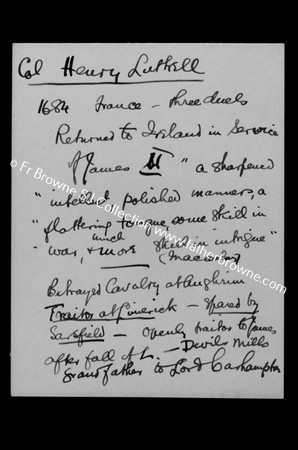 Col Henry Luttrell
1684 France - three duels
Returned to Ireland in Service
of James II "a sharpened
"intellect polished manners, a
"flattering tongue some skill in
"war, & much more skill in intrigue"
(Macaulay)
Betrayed Cavalry at Aughrim
Traitor at Limerick - spared by
Sarsfield - openly traitor to James
after fall of L. - Devils Mills
Grandfather to Lord Carhampton
© Fr Browne SJ Collection www.fatherbrowne.com